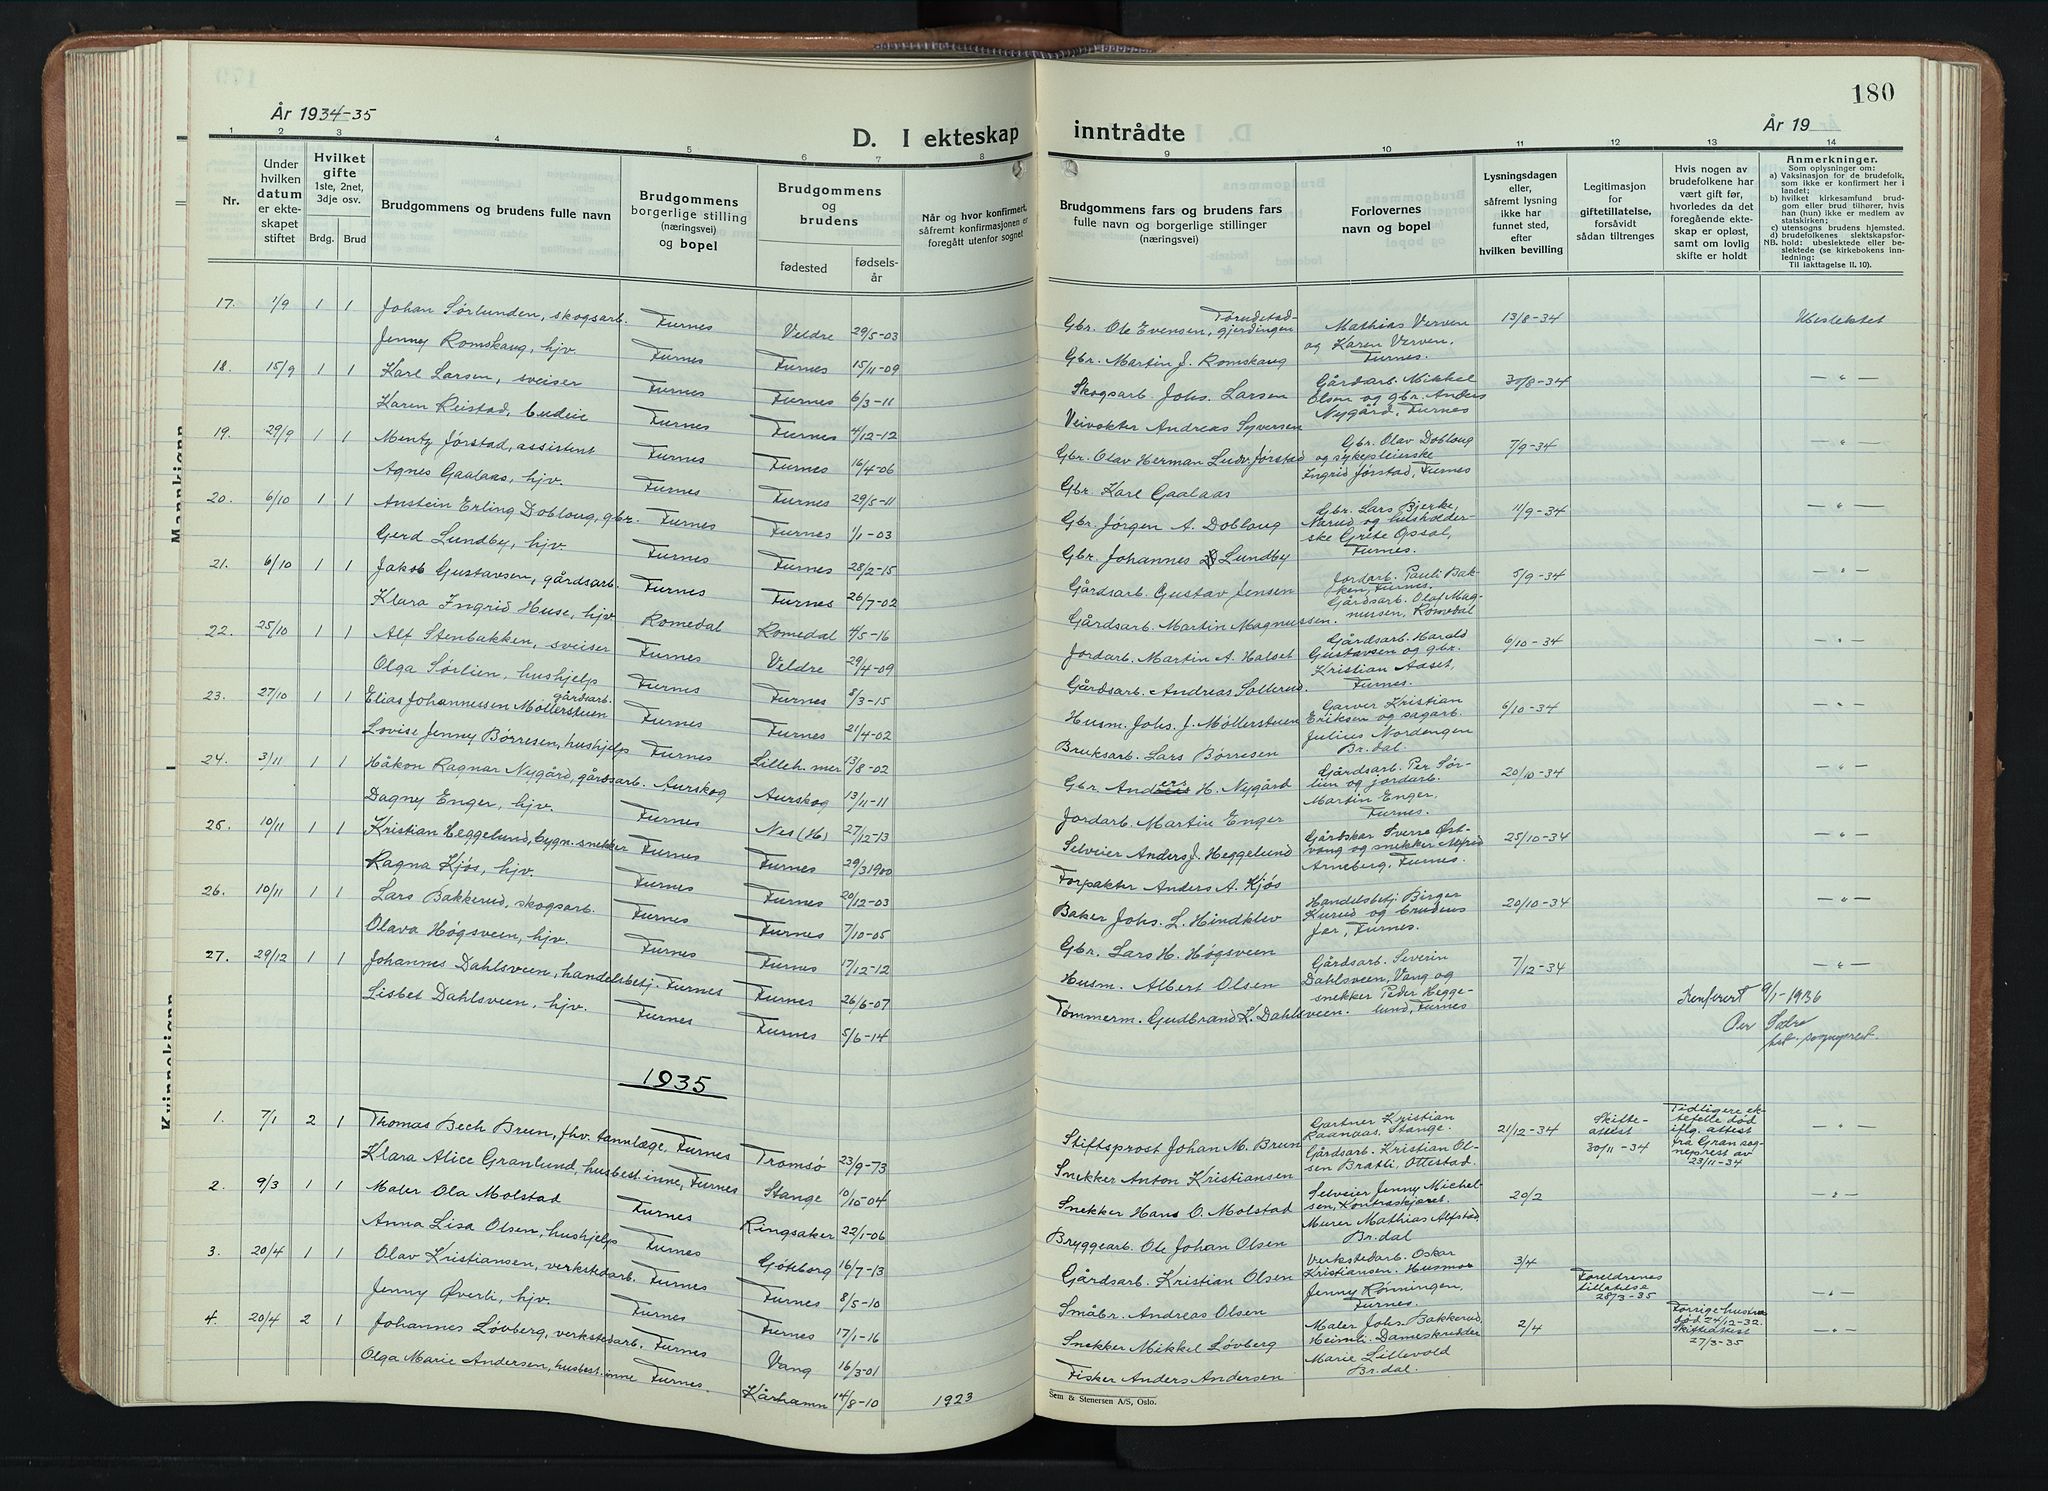 180
År 1934-35
D. I ekteskap inntrådte
År 19
1 2 3 4 5 6 7 8 9 10 11 12 13 14
Nr.
Under hvilken datum er ekteskapet stiftet
Hvilket gifte 1ste, 2net, 3dje osv.
Brdg. Brud
Brudgommens og brudens fulle navn
Brudgommens borgerlige stilling (næringsvei) og bopel
Brudgommens og brudens
fødested
fødselsår
Når og hvor konfirmert, såfremt konfirmasjonen er foregått utenfor sognet
Brudgommens fars og brudens fars fulle navn og borgerlige stillinger (næringsvei)
Forlovernes navn og bopel
Lysningsdagen eller, såfremt lysning ikke har funnet sted, efter hvilken bevilling
Legitimasjon for giftetillatelse, forsåvidt sådan tiltrenges
Hvis nogen av brudefolkene har vært gift før, hvorledes da det foregående ekteskap er opløst, samt om lovlig skifte er holdt
Anmerkninger.
Som oplysninger om:
a) Vaksinasjon for de brudefolk, som ikke er konfirmert her i landet;
b) hvilket kirkesamfund brudgom eller brud tilhører, hvis han (hun) ikke er medlem av statskirken;
c) utensogns brudens hjemsted.
d) brudefolkenes slektskapsforhold: ubeslektede eller beslektede (se kirkebokens innledning:
NB.
Til iakttagelse II. 10).
Mannkjønn
Kvinnekjønn
17. 1/9 1 1 Johan Sørlunden, skogsarb. Furnes Veldre 29/5-03 Gbr. Ole Evensen, Torudstadgjerdingen Mathias Verven og Karen Verven, Furnes. 13/8-34 Ubeslektet
Jenny Romskaug, hjv. Furnes Furnes 15/11-09 Gbr. Martin J. Romskaug
18. 15/9 1 1 Karl Larsen, sveiser Furnes Furnes 6/3-11 Skogsarb. Johs. Larsen Gårdsarb. Mikkel Olsen og gbr. Anders Nygård, Furnes 30/8-34 — " —
Karen Reistad, budeie Furnes Furnes 4/12-12 Veivokter Andreas Syversen
19. 29/9 1 1 Mentz Jørstad, assistent Furnes Furnes 16/4-06 Gbr. Olav Herman Ludv. Jørstad Gbr. Olav Dobloug og sykepleierske Ingrid Jørstad, Furnes 7/9-34 — " —
Agnes Gaalaas, hjv. Furnes Furnes 29/5-11 Gbr. Karl Gaalaas
20. 6/10 1 1 Anstein Erling Dobloug, gbr. Furnes Furnes 1/1-03 Gbr. Jørgen A. Dobloug Gbr. Lars Bjerke, Narud og husholderske Grete Opsal, Furnes. 11/9-34 — " —
Gerd Lundby, hjv. Furnes Furnes 28/2-15 Gbr. Johannes Lundby
21. 6/10 1 1 Jakob Gustavsen, gårdsarb. Furnes Furnes 26/7-02 Gårdsarb. Gustav Jensen Jordarb. Pauli Bakken, Furnes. Gårdsarb. Olaf Magnussen, Romedal 5/9-34 — " —
Klara Ingrid Huse, hjv Romedal Romedal 4/5-16 Gårdsarb. Martin Magnussen.
22. 25/10 1 1 Alf Stenbakken, sveiser Furnes Veldre 29/4-09 Jordarb. Martin A. Halset Gårdsarb. Harald Gustavsen og gbr. Kristian Aaset, Furnes. 6/10-34 — " —
Olga Sørlien, hushjelp Furnes Furnes 8/3-15 Gårdsarb. Andreas Sollerud.
23. 27/10 1 1 Elias Johannessen Møllerstuen gårdsarb. Furnes Furnes 21/4-02 Husm. Johs. J. Møllerstuen Garver Kristian Eriksen og sagarb. Julius Nordengen Br.dal. 6/10-34 — " —
Lovise Jenny Børresen, hushjelp Furnes Lilleh.mer 13/8-02 Bruksarb. Lars Børresen
24. 3/11 1 1 Håkon Ragnar Nygård, gårdsarb. Aurskog Aurskog 13/11-11 Gbr. Anders H. Nygård Gårdsarb. Per Sørlun og jordarb. Martin Enger, Furnes. 20/10-34 — " —
Dagny Enger, hjv. Furnes Nes (H) 27/12-13 Jordarb. Martin Enger
25. 10/11 1 1 Kristian Heggelund, bygn. snekker Furnes Furnes 29/3 1900 Selveier Anders J. Heggelund Gårdskar Sverre Østvang og snekker Alfred Arneberg, Furnes. 25/10-34 — " —
Ragna Kjøs, hjv. Furnes Furnes 20/12-03 Forpakter Anders A. Kjøs
26. 10/11 1 1 Lars Bakkerud, skogsarb. Furnes Furnes 7/10-05 Baker Johs. L. Hindklev Handelsbetj. Birger Kurud og brudens far, Furnes. 20/10-34 — " —
Olava Høgsveen, hjv. Furnes Furnes 17/12-12 Gbr. Lars H. Høgsveen
27. 29/12 1 1 Johannes Dahlsveen, handelsbetj. Furnes Furnes 26/6-07 Husm. Albert Olsen Gårdsarb. Severin Dahlsveen, Vang og snekker Peder Heggelund, Furnes 7/12-34 — " —
Lisbet Dahlsveen, hjv. Furnes Furnes 5/6-14 Tømmerm. Gudbrand K. Dahlsveen.
Konferert 9/1-1936
Per Sælre
kst. sogneprest.
1935
1. 7/1 2 1 Thomas Bech Brun, fhv. tannlæge, Furnes Tromsø 23/9-73 Stiftsprost Johan M. Brun Gartner Kristian Raanaas, Stange. Gårdsarb. Kristian Olsen Bratli, Ottestad. 21/12-34 Skifteattest 30/11-34 Tidligere ektefelle død iflg. attest fra Gran sogneprest av 23/11-34 — " —
Klara Alice Granlund, husbest.inne, Furnes Stange 10/10-04 Snekker Anton Kristiansen
2. 9/3 1 1 Maler Ola Molstad Furnes Ringsaker 22/1-06 Snekker Hans O. Molstad Selveier Jenny Michelsen, Kontraskjæret. Murer Mathias Alfstad, Br.dal 20/2 — " —
Anna Lisa Olsen, hushjelp Furnes Göteborg 16/7-13 Bryggearb. Ole Johan Olsen
3. 20/4 1 1 Olav Kristiansen, verkstedarb. Furnes Furnes 8/5-10 Gårdsarb. Kristian Olsen Verkstedarb. Oskar Kristiansen. Husmor Jenny Rønningen, Furnes. 3/4 Foreldrenes tillatelse 28/3-35 — " —
Jenny Øverli, hjv. Furnes Furnes 17/1-16 Småbr. Andreas Olsen
4. 20/4 2 1 Johannes Løvberg, verkstedarb. Furnes Vang 16/3-01 Snekker Mikkel Løvberg Maler Johs. Bakkerud, Heimli. Dameskredder Marie Lillevold Br.dal 2/4 Forrige hustru død 24/12-32. Skifteattest 27/3-35 — " —
Olga Marie Andersen, husbest.inne Furnes. Kårhamn 14/8-10 1923 Fisker Anders Andersen
Sem & Stenersen A/S, Oslo.